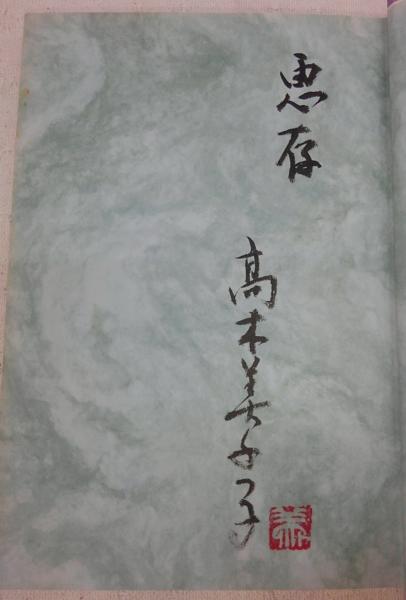 恵存
髙木美千子
美